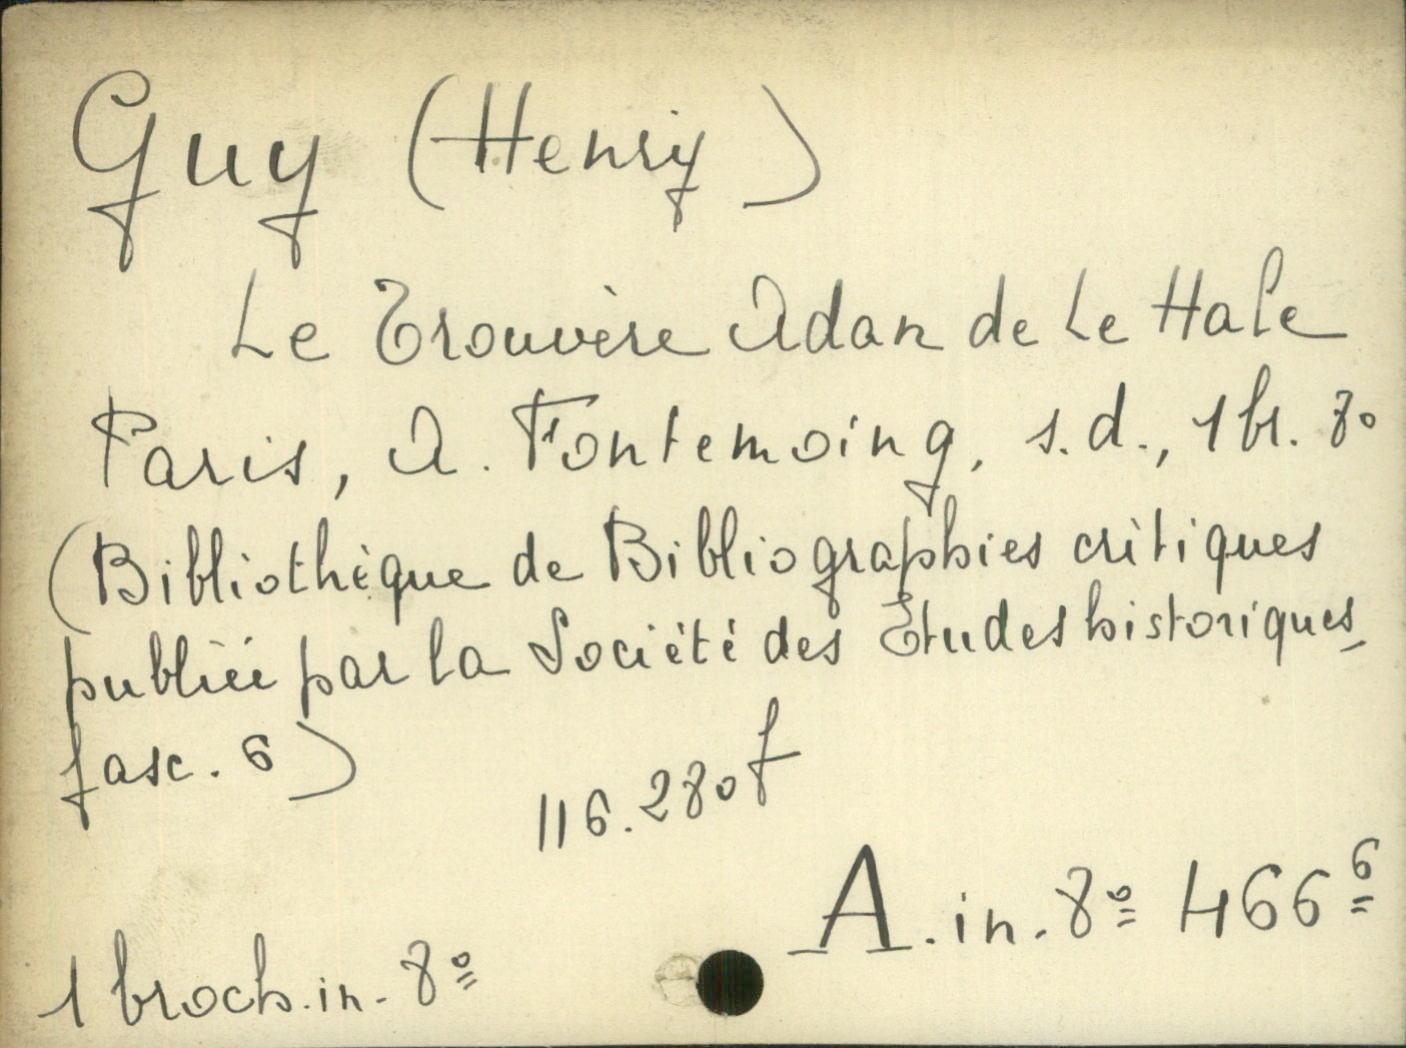 Guy (Henry)
Le Trouvère Adan de Le Hale
Paris, A. Fontemoing, s.d., 1 br. 8o
(Bibliothèque de Bibliographies critiques
publiée par la Société des Etudes historiques,
fasc. 6)
116.280 f
A. in. 8º 466 6
1 broch. in- 8º